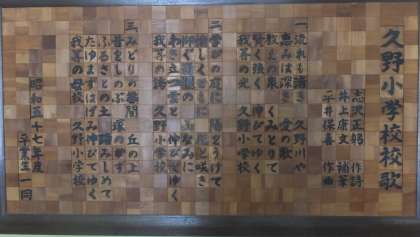 久野小学校校歌
志沢正躬 作詩
井上康文 補筆
平井保喜 作曲
一 流れも清き 久野川や
恵みは深き 愛の歌
教えの泉 くみとりて
賢く強く 伸びてゆく
我等の光 久野小学校
二 学びの庭に 陽をうけて
仲
我等の誇 久野小学校
三 みどりの 丘の上
昔をしのぶ 塚のかず
ふるさとの土 踏みしめて
たゆまずはげみ 伸びてゆく
我等の母校 久野小学校
昭和五十七年度
卒業生一同